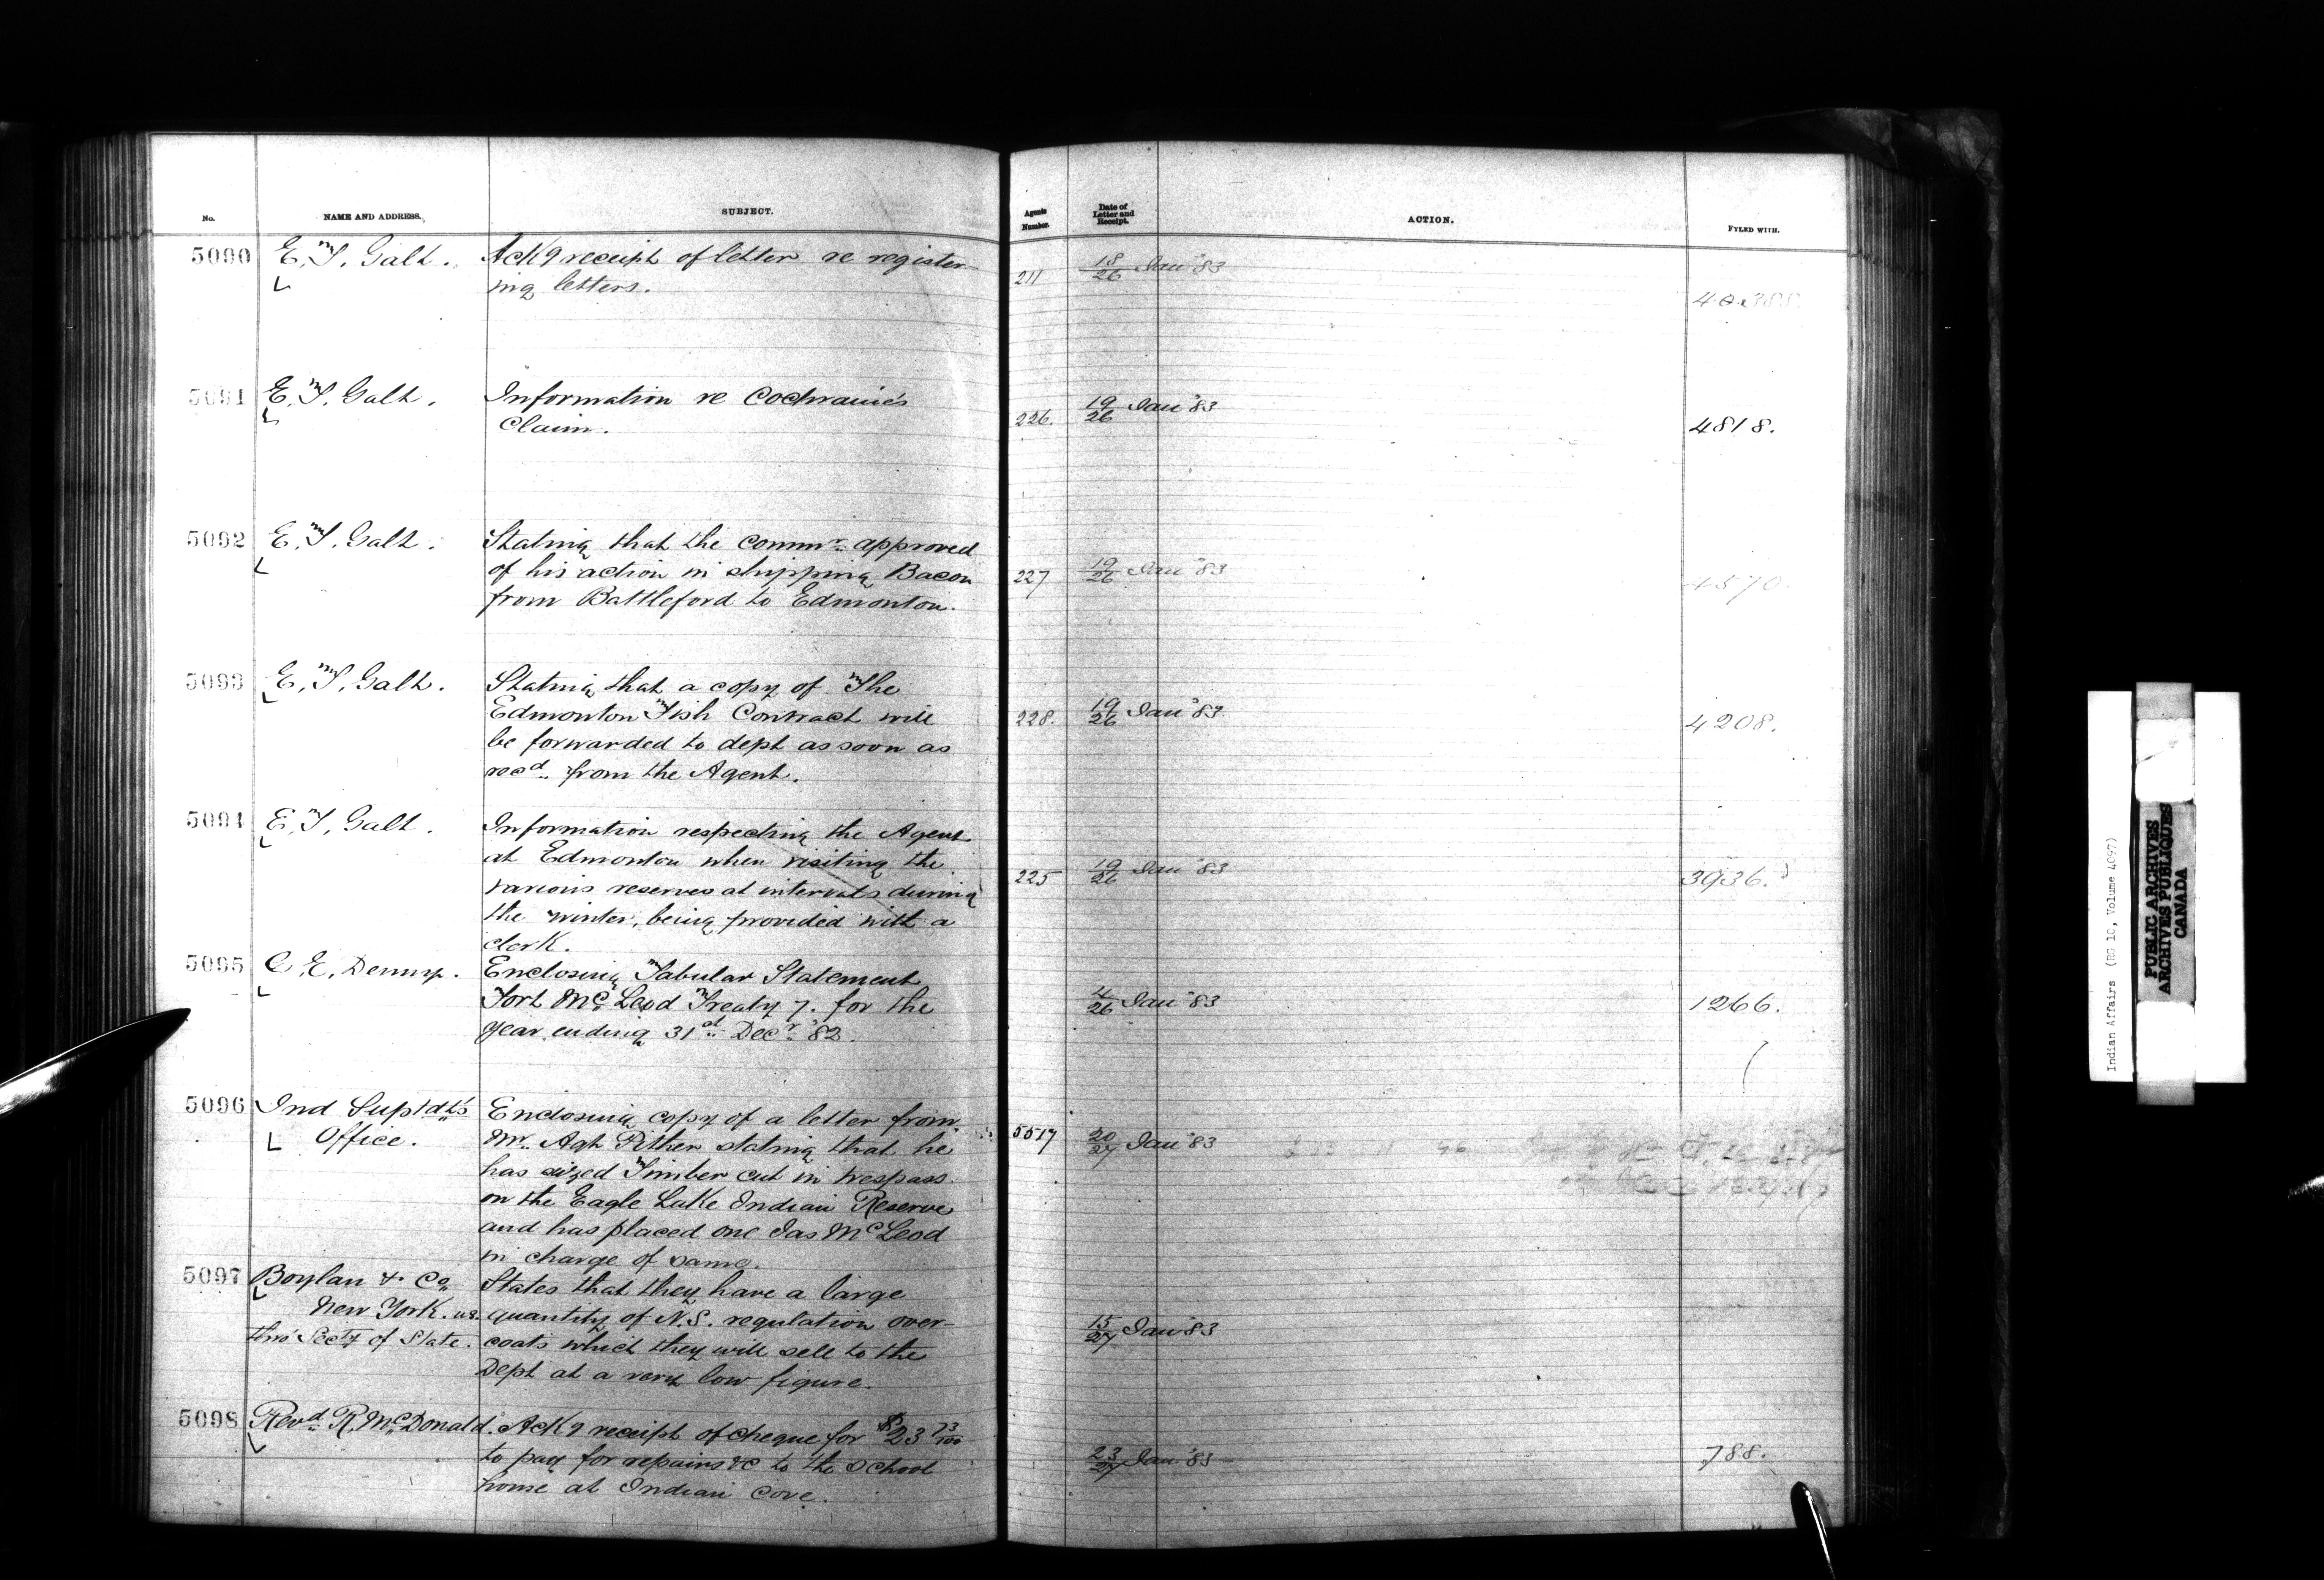 No. NAME AND ADDRESS. SUBJECT. Agents Number. Date of Letter and Receipt. ACTION. FYLED WITH.
5090 E. T. Galt. Ackg receipt of letter re register- 211 18/26 Jan '83
ing letters.
5091 E. T. Galt. Information re Cochrane's 226. 19/26 Jan '83 4818.
Claim.
5092 E. T. Galt. Stating that the Commr. approved 227 19/26 Jan '83 4570.
of his action in shipping Bacon
from Battleford to Edmonton.
5093 E. T. Galt. Stating that a copy of The 228. 19/26 Jan '83 4208.
Edmonton Fish Contract will
be forwarded to dept as soon as
recd. from the Agent.
5094 E. T. Galt. Information respecting the Agent 225 19/26 Jan '83 3936.
at Edmonton when visiting the
various reserves at intervals during
the winter, being provided with a
clerk.
5095 C. E. Denny. Enclosing Tabular Statement 4/26 Jan '83 1266.
Fort McLeod Treaty 7. for the
year ending 31st Decr. '82.
5096 Ind Suptdt's Enclosing copy of a letter from 5517 20/27 Jan '83
Office. Mr. Agt Pither stating that he
has siezed Timber cut in trespass
on the Eagle Lake Indian Reserve
and has placed one Jas McLeod
in charge of same.
5097 Boylan & Co States that they have a large 15/27 Jan '83
New York. U.S. quantity of N.S. regulation over-
thro' Secty of State. coats which they will sell to the
Dept at a very low figure.
5098 Revd. R. McDonald. Ackg receipt of cheque for $23 73/100 23/27 Jan '83 788.
to pay for repairs &c to the School
house at Indian Cove.
Indian Affairs (RG 10, Volume 4097)
PUBLIC ARCHIVES
ARCHIVES PUBLIQUES
CANADA